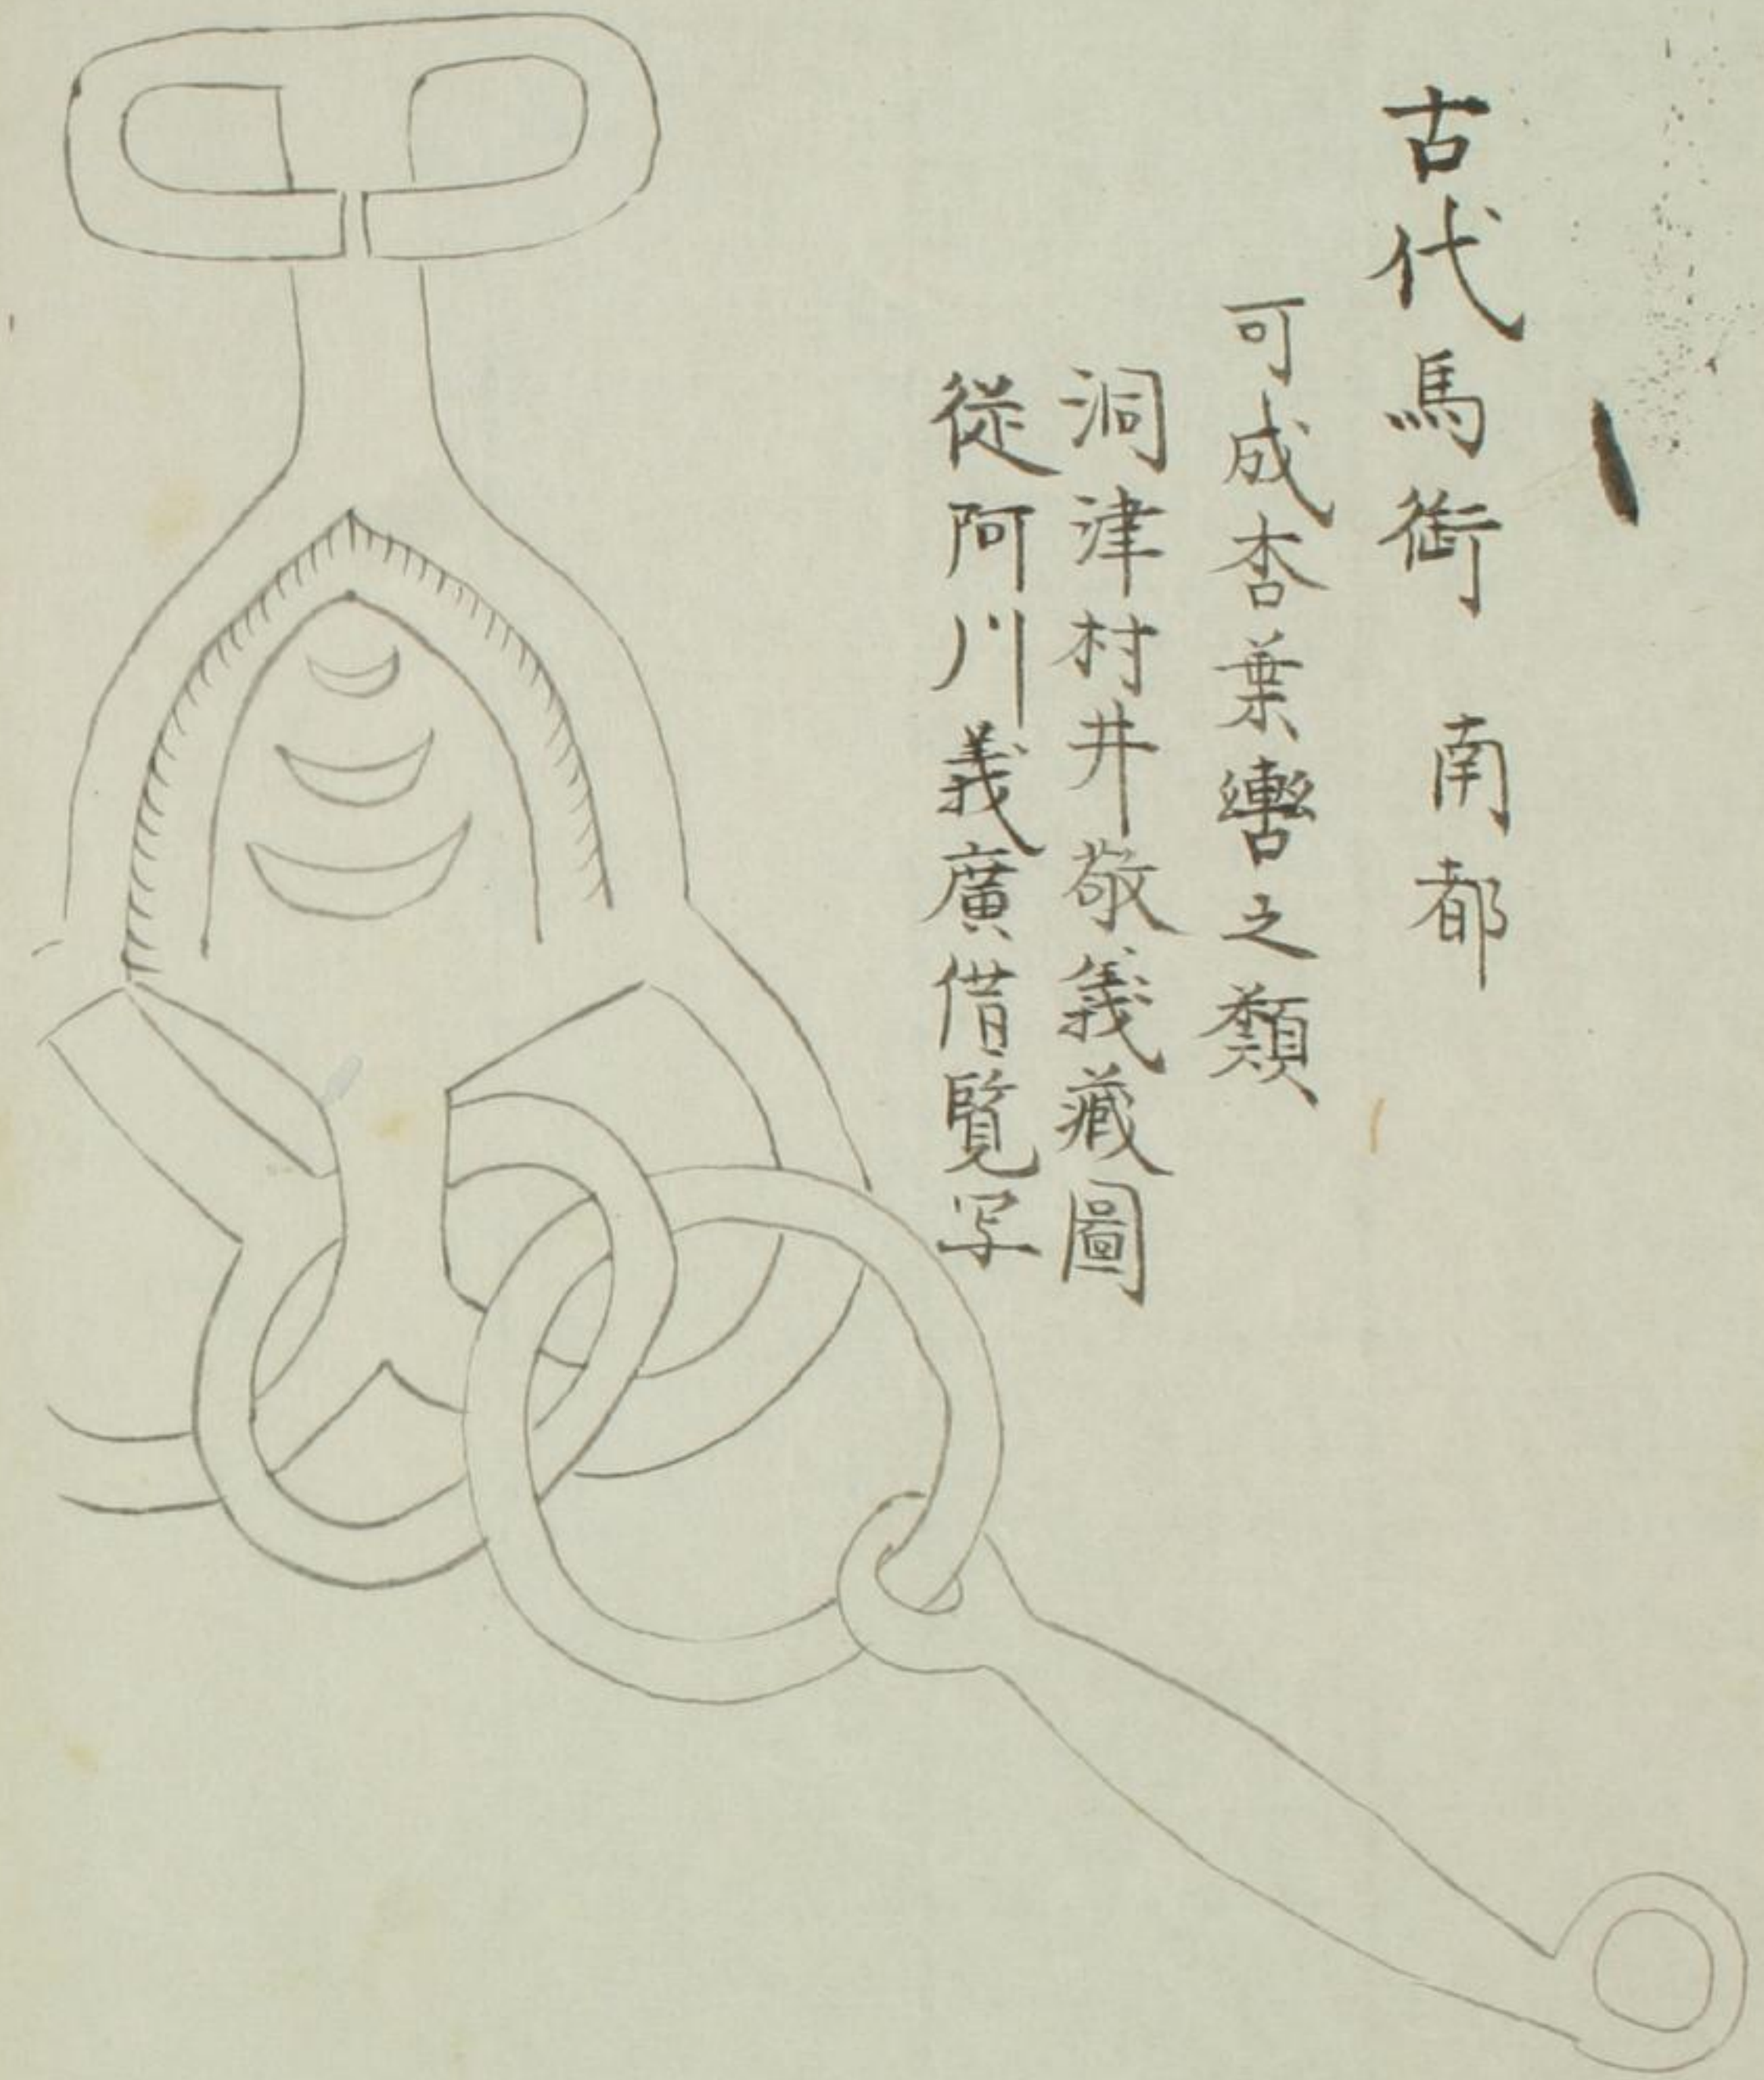 古代馬銜 南都
可成杏葉轡之類
洞津村井敬義藏圖
從阿川義廣借覧写